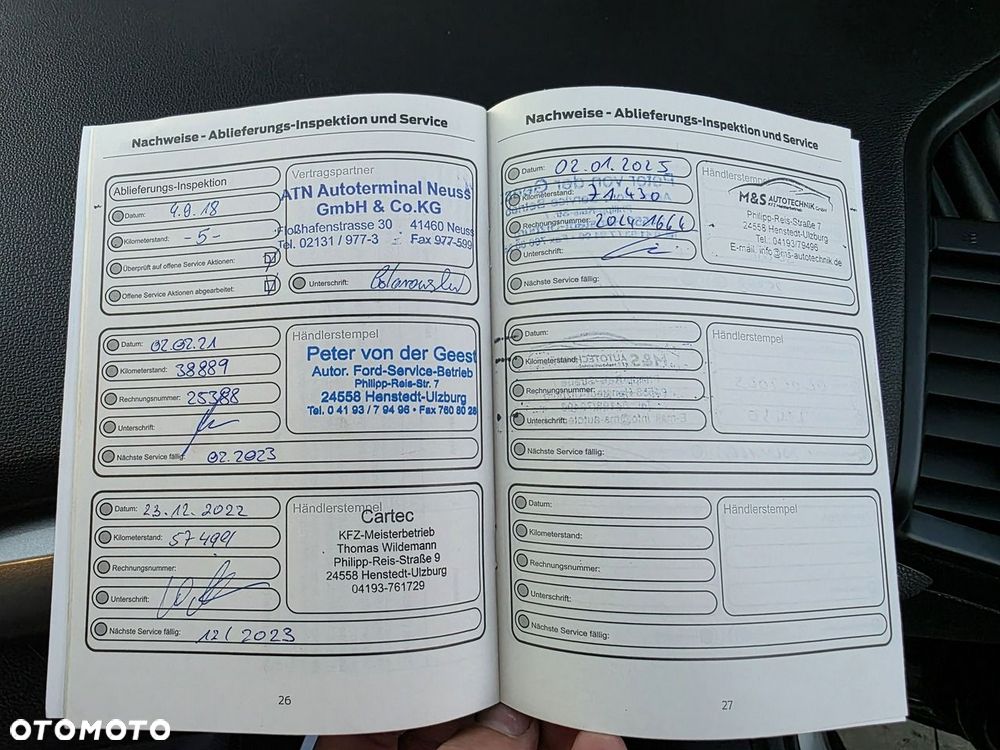 Nachweise - Ablieferungs-Inspektion und Service
Ablieferungs-Inspektion
Datum: 4.9.18
Kilometerstand: -5-
Überprüft auf offene Service Aktionen:
Offene Service Aktionen abgearbeitet:
Vertragspartner
ATN Autoterminal Neuss
GmbH & Co.KG
Floßhafenstrasse 30 41460 Neuss
Tel. 02131 / 977-3 Fax 977-599
Unterschrift:
Datum: 02.02.21
Kilometerstand: 38889
Rechnungsnummer: 25388
Unterschrift:
Nächste Service fällig: 02.2023
Händlerstempel
Peter von der Geest
Autor. Ford-Service-Betrieb
Philipp-Reis-Str. 7
24558 Henstedt-Ulzburg
Tel. 0 41 93 / 7 94 96 • Fax 760 80 28
Datum: 23.12.2022
Kilometerstand: 57499
Rechnungsnummer:
Unterschrift:
Nächste Service fällig: 12/2023
Händlerstempel
Cartec
KFZ-Meisterbetrieb
Thomas Wildemann
Philipp-Reis-Straße 9
24558 Henstedt-Ulzburg
04193-761729
26
Nachweise - Ablieferungs-Inspektion und Service
Datum: 02.01.2025
Kilometerstand: 71.430
Rechnungsnummer: 20241644
Unterschrift:
Nächste Service fällig:
Händlerstempel
M&S AUTOTECHNIK GmbH
KFZ Meisterbetrieb
Philipp-Reis-Straße 7
24558 Henstedt-Ulzburg
Tel.: 04193/79496
E-mail: info@ms-autotechnik.de
Datum:
Kilometerstand:
Rechnungsnummer:
Unterschrift:
Nächste Service fällig:
Händlerstempel
Datum:
Kilometerstand:
Rechnungsnummer:
Unterschrift:
Nächste Service fällig:
Händlerstempel
27
OTOMOTO